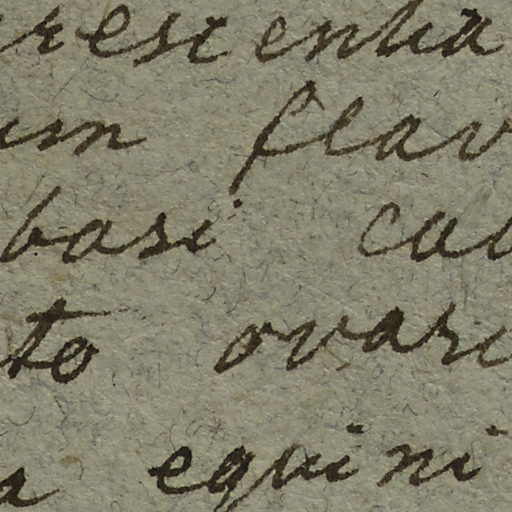 rescentia
um flav
basi cau
to ovari
a equini